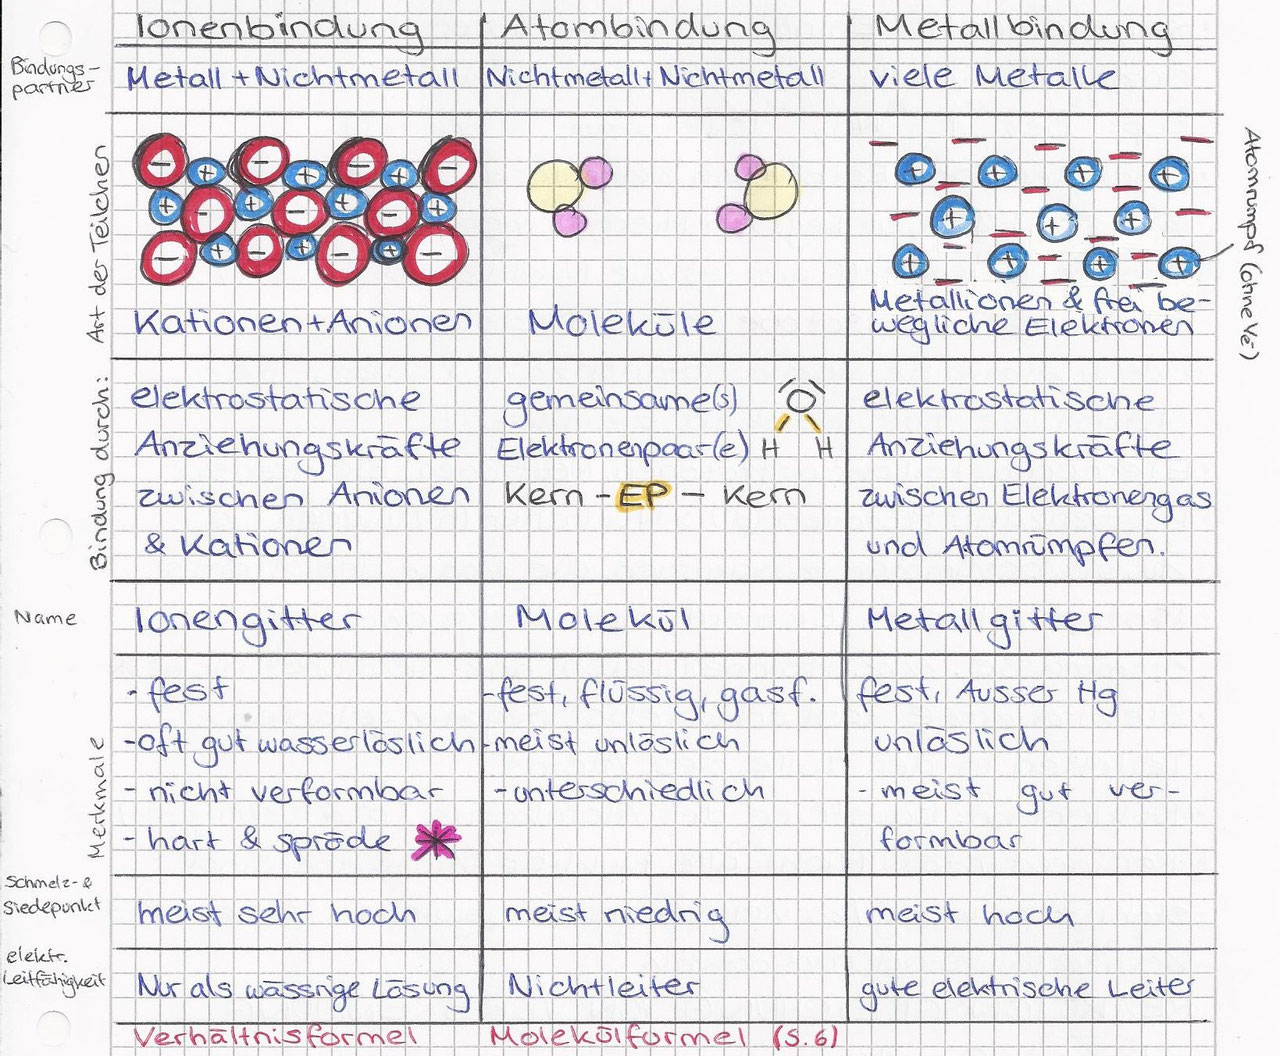 Ionenbindung Atombindung Metallbindung
Bindungs-
partner
Metall + Nichtmetall Nichtmetall + Nichtmetall viele Metalle
Art der Teilchen
- + - + - + -
+ - + - + - +
- + - + - + -
+ + + +
+ + +
+ + + +
Atomrumpf (ohne Ve-)
Kationen + Anionen Moleküle Metallionen & frei be-
wegliche Elektronen
Bindung durch:
elektrostatische gemeinsame(s) O elektrostatische
Anziehungskräfte Elektronenpaar(e) H H Anziehungskräfte
zwischen Anionen Kern - EP - Kern zwischen Elektronengas
& Kationen und Atomrümpfen.
Name Ionengitter Molekül Metallgitter
Merkmale
- fest - fest, flüssig, gasf. fest, Ausser Hg
- oft gut wasserlöslich - meist unlöslich unlöslich
- nicht verformbar - unterschiedlich - meist gut ver-
- hart & spröde * formbar
Schmelz- &
Siedepunkt
meist sehr hoch meist niedrig meist hoch
elektr.
Leitfähigkeit
Nur als wässrige Lösung Nichtleiter gute elektrische Leiter
Verhältnisformel Molekülformel (S. 6)